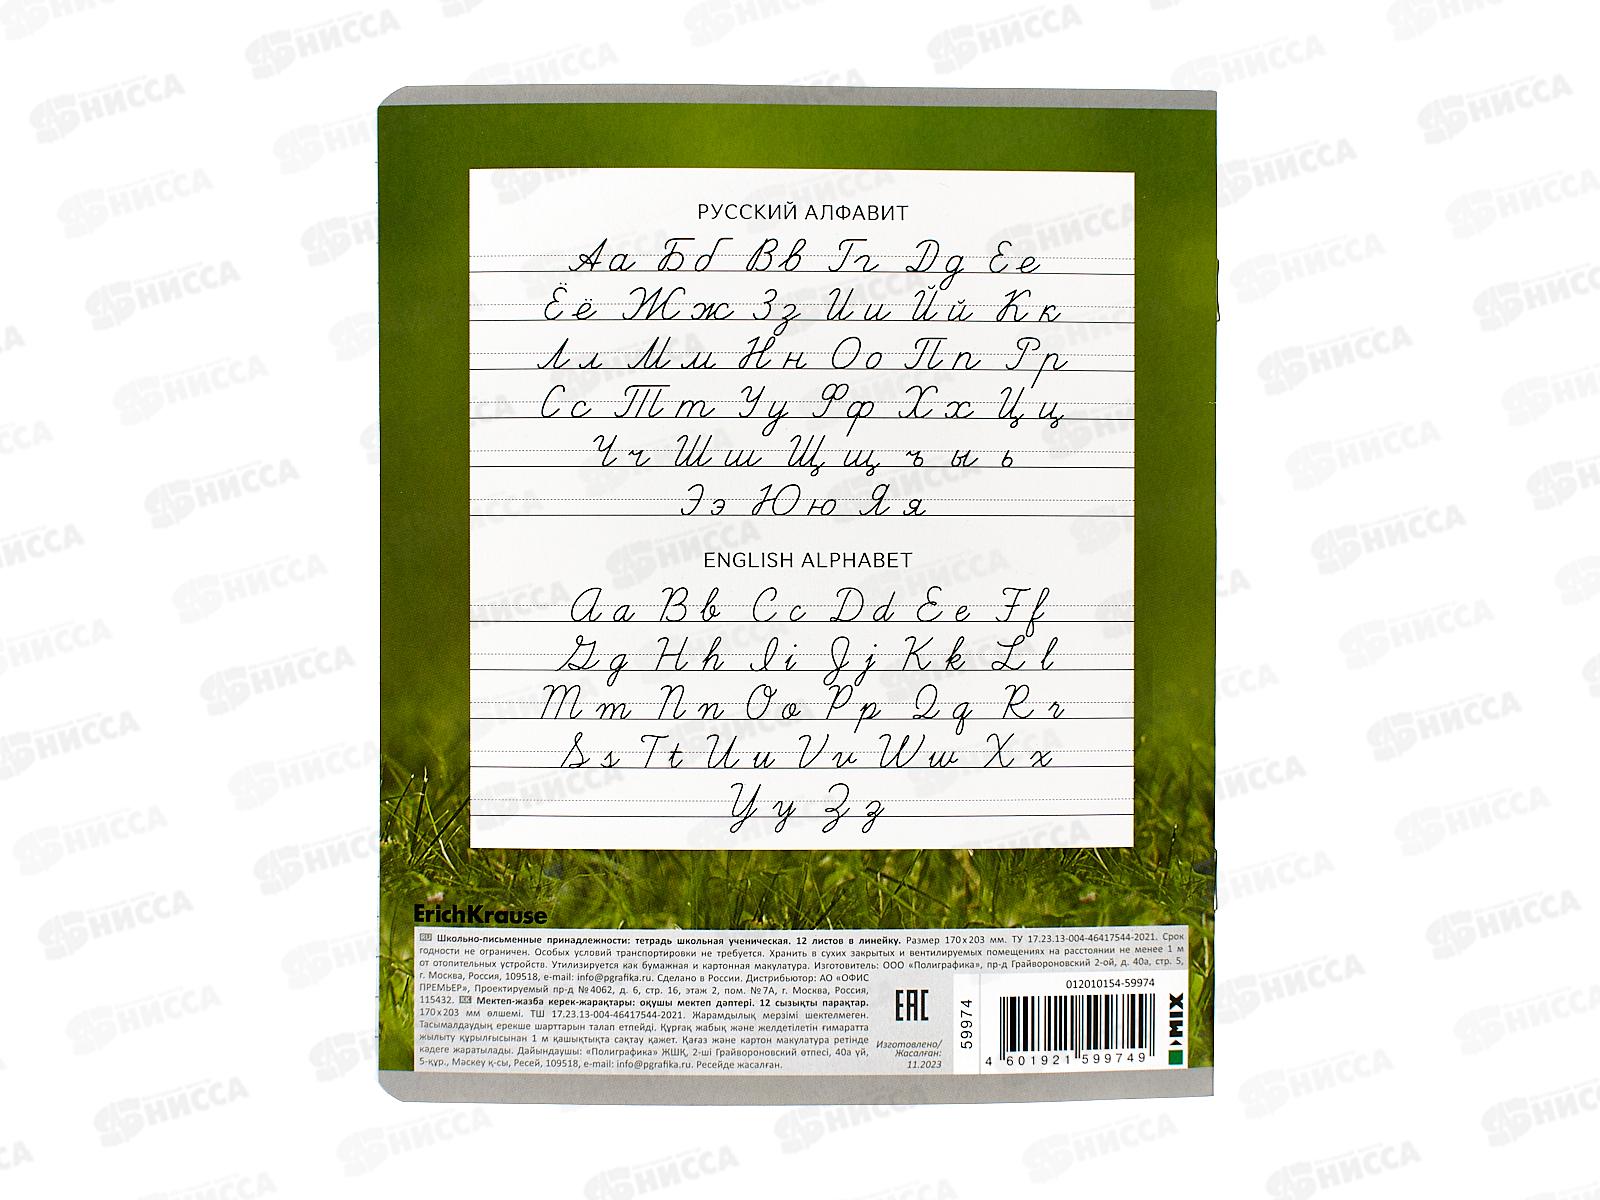 РУССКИЙ АЛФАВИТ
Аа Бб Вв Гг Дд Ее
Ёё Жж Зз Ии Йй Кк
Лл Мм Нн Оо Пп Рр
Сс Тт Уу Фф Хх Цц
Чч Шш Щщ ъ ы ь
Ээ Юю Яя
ENGLISH ALPHABET
Aa Bb Cc Dd Ee Ff
Gg Hh Ii Jj Kk Ll
Mm Nn Oo Pp Qq Rr
Ss Tt Uu Vv Ww Xx
Yy Zz
ErichKrause
RU Школьно-письменные принадлежности: тетрадь школьная ученическая. 12 листов в линейку. Размер 170х203 мм. ТУ 17.23.13-004-46417544-2021. Срок
годности не ограничен. Особых условий транспортировки не требуется. Хранить в сухих закрытых и вентилируемых помещениях на расстоянии не менее 1 м
от отопительных устройств. Утилизируется как бумажная и картонная макулатура. Изготовитель: ООО «Полиграфика», пр-д Грайвороновский 2-ой, д. 40а, стр. 5,
г. Москва, Россия, 109518, e-mail: info@pgrafika.ru. Сделано в России. Дистрибьютор: АО «ОФИС
ПРЕМЬЕР», Проектируемый пр-д №4062, д. 6, стр. 16, этаж 2, пом. №7А, г. Москва, Россия,
115432. KK Мектеп-жазба керек-жарақтары: оқушы мектеп дәптері. 12 сызықты парақтар.
170х203 мм өлшемі. ТШ 17.23.13-004-46417544-2021. Жарамдылық мерзімі шектелмеген.
Тасымалдаудың ерекше шарттарын талап етпейді. Құрғақ жабық және желдетілетін ғимаратта
жылыту құрылғысынан 1 м қашықтықта сақтау қажет. Қағаз және картон макулатура ретінде
кәдеге жаратылады. Дайындаушы: «Полиграфика» ЖШҚ, 2-ші Грайвороновский өтпесі, 40а үй,
5-құр., Мәскеу қ-сы, Ресей, 109518, e-mail: info@pgrafika.ru. Ресейде жасалған.
EAC
Изготовлено/
Жасалған:
11.2023
59974
012010154-59974
4 601921 599749
MIX
НИССА